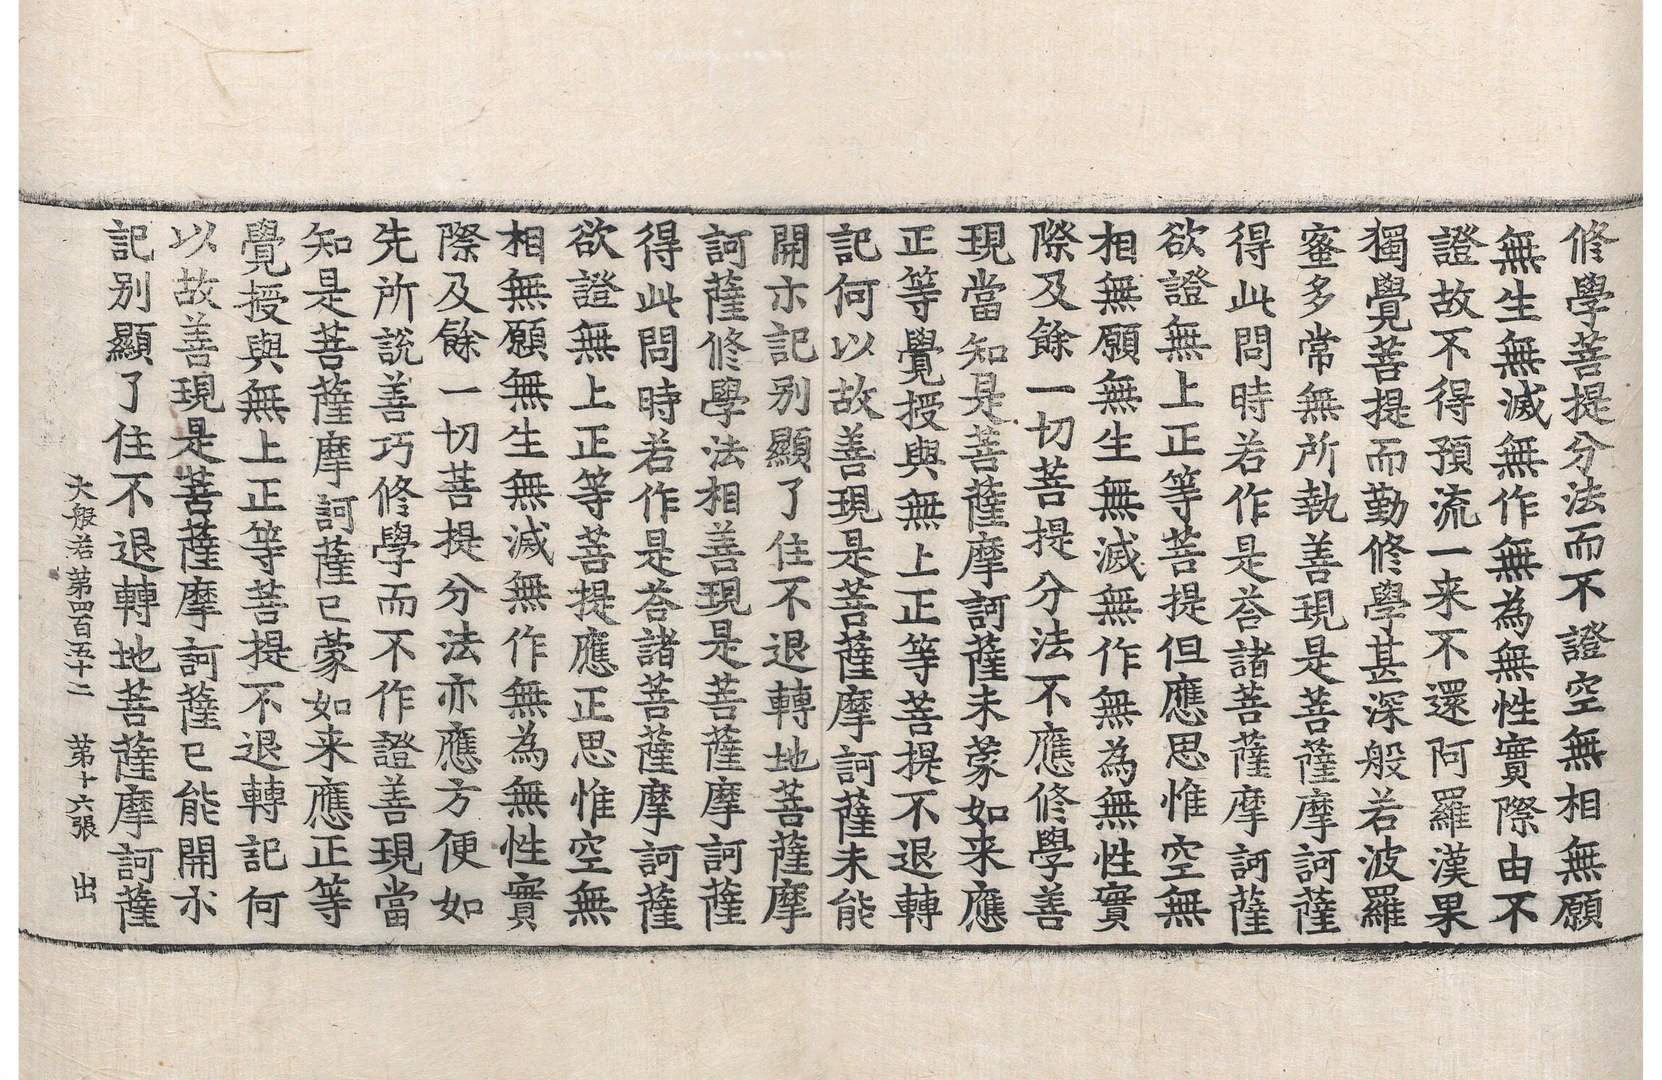 修學菩提分法而不證空無相無願
無生無滅無作無為無性實際由不
證故不得預流一来不還阿羅漢果
獨覺菩提而勤修學甚深般若波羅
蜜多常無所執善現是菩薩摩訶薩
得此問時若作是荅諸菩薩摩訶薩
欲證無上正等菩提但應思惟空無
相無願無生無滅無作無為無性實
際及餘一切菩提分法不應修學善
現當知是菩薩摩訶薩未蒙如来應
正等覺授與無上正等菩提不退轉
記何以故善現是菩薩摩訶薩未能
開示記别顯了住不退轉地菩薩摩
訶薩修學法相善現是菩薩摩訶薩
得此問時若作是荅諸菩薩摩訶薩
欲證無上正等菩提應正思惟空無
相無願無生無滅無作無為無性實
際及餘一切菩提分法亦應方便如
先所說善巧修學而不作證善現當
知是菩薩摩訶薩已蒙如来應正等
覺授與無上正等菩提不退轉記何
以故善現是菩薩摩訶薩已能開示
記别顯了住不退轉地菩薩摩訶薩
大般若第四百五十二 第十六張 出